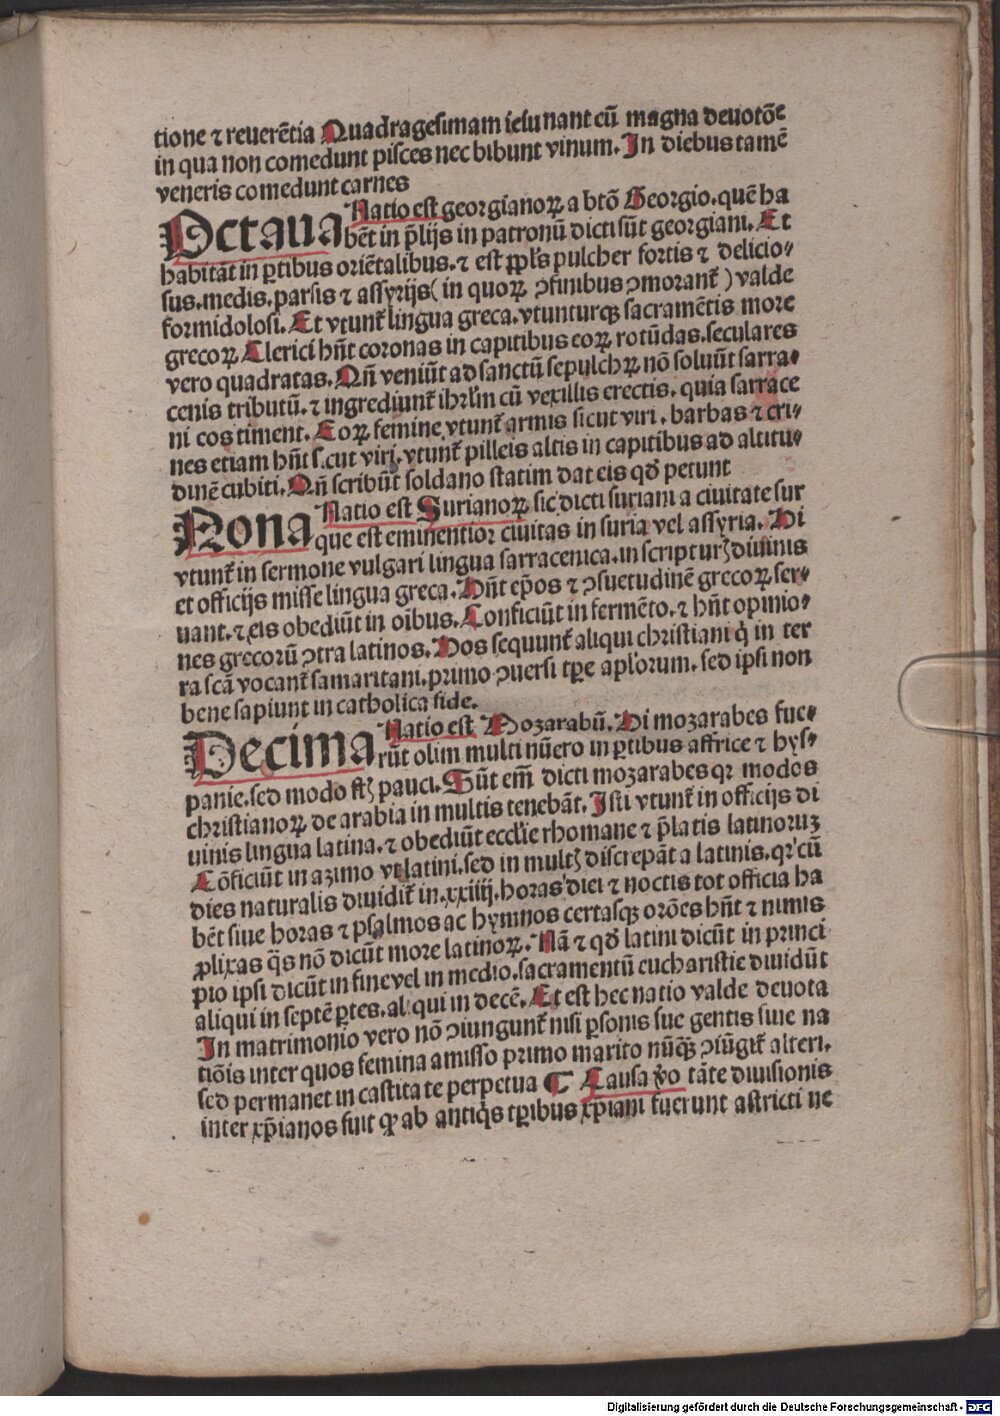 tione ⁊ reuerẽtia Quadragesimam ieiunant cũ magna deuotõe
in qua non comedunt pisces nec bibunt vinum. In diebus tamẽ
veneris comedunt carnes
Octaua Natio est georgianoꝝ a btõ Georgio. quẽ ha
bẽt in p̃lijs in patronũ dicti sũt georgiani. Et
habitãt in ꝑtibus oriẽtalibus. ⁊ est ppl̃s pulcher fortis ⁊ delicio⸗
sus. medis. parsis ⁊ assyrijs ( in quoꝝ ↄfinibus ↄmorant᷑ ) valde
formidolosi. Et vtunt᷑ lingua greca. vtunturqꝫ sacramẽtis more
grecoꝝ Clerici hñt coronas in capitibus eoꝝ rotũdas. seculares
vero quadratas. Qñ veniũt ad sanctũ sepulchꝝ nõ soluũt sarra⸗
cenis tributũ. ⁊ ingrediunt᷑ ihrl̃m cũ vexillis erectis. quia sarrace
ni eos timent. Eoꝝ femine vtunt᷑ armis sicut viri. barbas ⁊ cri⸗
nes etiam hñt sicut viri. vtunt᷑ pilleis altis in capitibus ad altitu⸗
dinẽ cubiti. Qñ scribũt soldano statim dat eis qd̃ petunt
Nona Natio est Surianoꝝ sic dicti suriani a ciuitate sur
que est eminentior ciuitas in suria vel assyria. Hi
vtunt᷑ in sermone vulgari lingua sarracenica. in scripturꝫ diuinis
et officijs misse lingua greca. Hñt ep̃os ⁊ ↄsuetudinẽ grecoꝝ ser⸗
uant. ⁊ eis obediũt in oĩbus. Conficiũt in fermẽto. ⁊ hñt opinio⸗
nes grecorũ ↄtra latinos. Hos sequunt᷑ aliqui christiani q̃ in ter
ra scã vocant᷑ samaritani. primo ↄuersi tꝑe apl̃orum. sed ipsi non
bene sapiunt in catholica fide.
Decima Natio est Mozarabũ. Hi mozarabes fue⸗
rũt olim multi nũero in ꝑtibus affrice ⁊ hys⸗
panie. sed modo st̃ꝫ pauci. Sũt em̃ dicti mozarabes qꝛ modos
christianoꝝ de arabia in multis tenebãt. Isti vtunt᷑ in officijs di
uinis lingua latina. ⁊ obediũt eccl̃ie rhomane ⁊ p̃latis latinoruꝫ
Cõficiũt in azimo vt latini. sed in multꝫ discrepãt a latinis. qꝛ cũ
dies naturalis diuidit᷑ in. xxiiij. horas diei ⁊ noctis tot officia ha
bẽt siue horas ⁊ psalmos ac hymnos certasqꝫ orões hñt ⁊ nimis
ꝓlixas q̃s nõ dicũt more latinoꝝ. Nã ⁊ qd̃ latini dicũt in princi
pio ipsi dicũt in fine vel in medio. sacramentũ eucharistie diuidũt
aliqui in septẽ ꝑtes. aliqui in decẽ. Et est hec natio valde deuota
In matrimonio vero nõ ↄiungunt᷑ nisi ꝑsonis sue gentis siue na
tiõis inter quos femina amisso primo marito nũqꝫ̃ ↄiũgit᷑ alteri.
sed permanet in castitate perpetua ¶ Causa v̾o tãte diuisionis
inter xp̃ianos fuit qꝫ ab antiq̃s tꝑibus xp̃iani fuerunt astricti ne
Digitalisierung gefördert durch die Deutsche Forschungsgemeinschaft - DFG